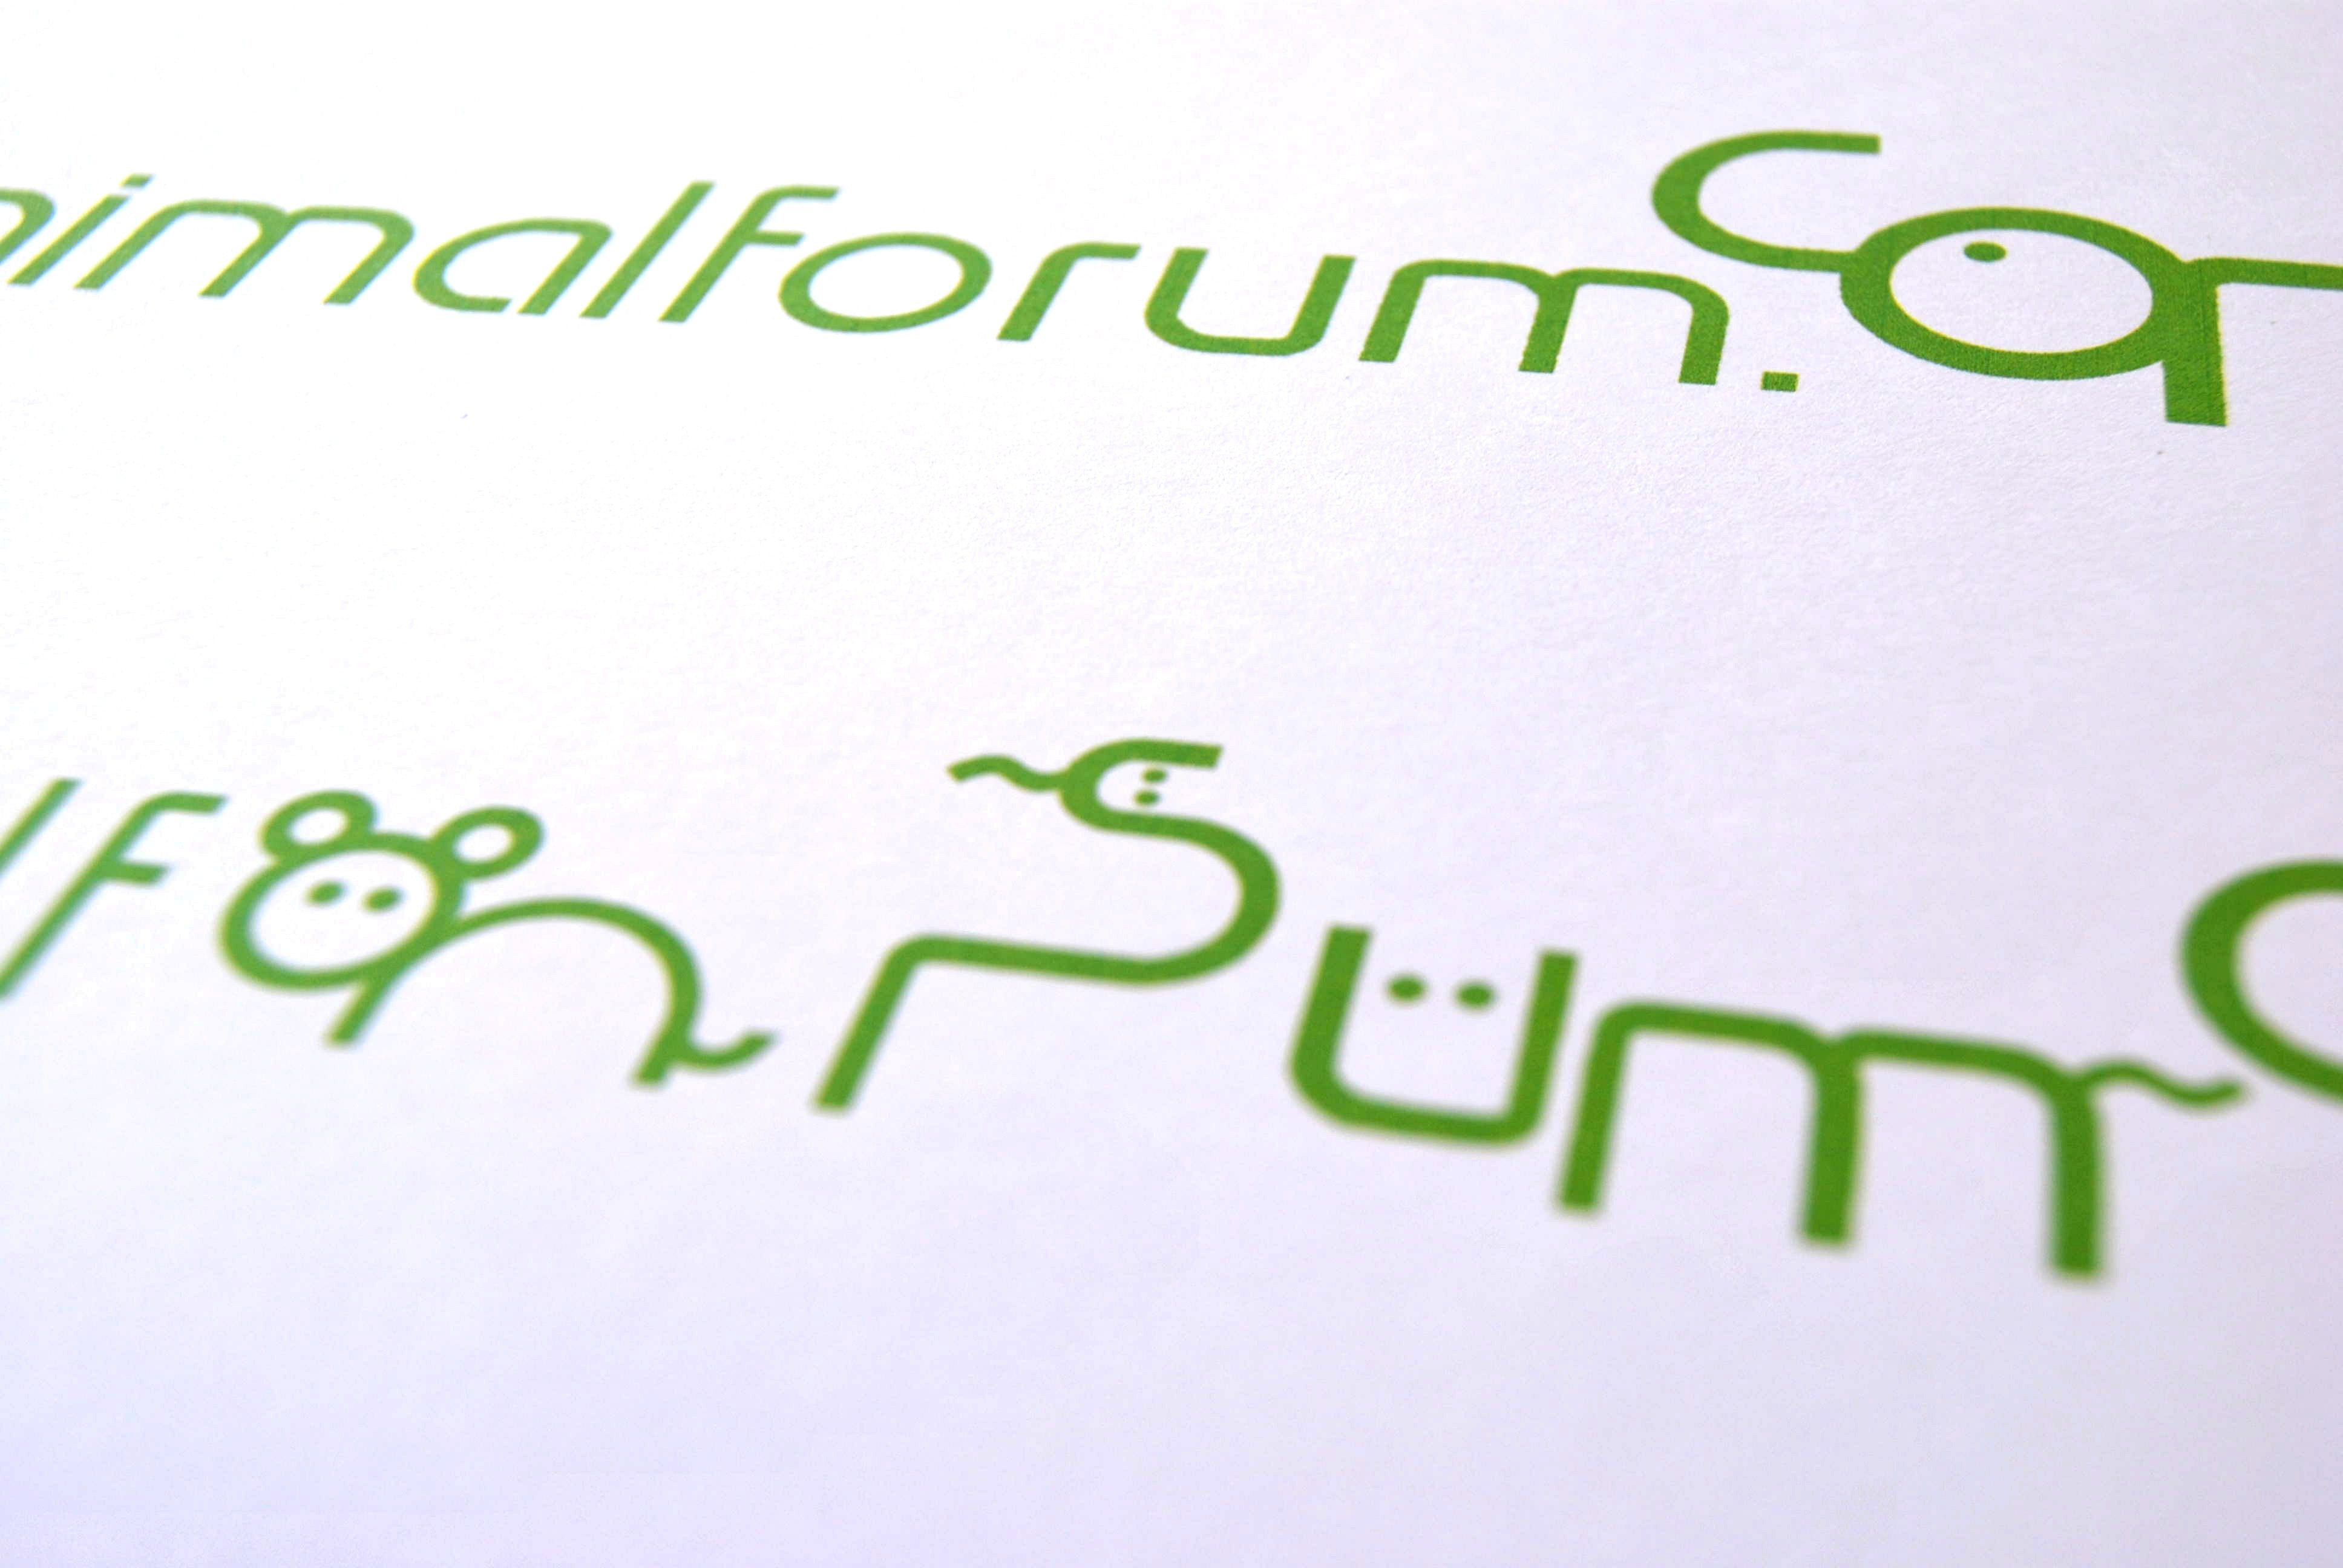 nimalforum.com
lforum